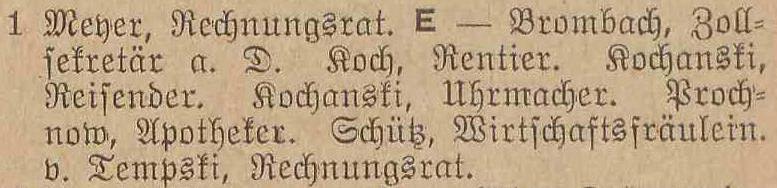 1 Meyer, Rechnungsrat. E — Brombach, Zoll-
sekretär a. D. Koch, Rentier. Kochanski,
Reisender. Kochanski, Uhrmacher. Proch-
now, Apotheker. Schütz, Wirtschaftsfräulein.
v. Tempski, Rechnungsrat.